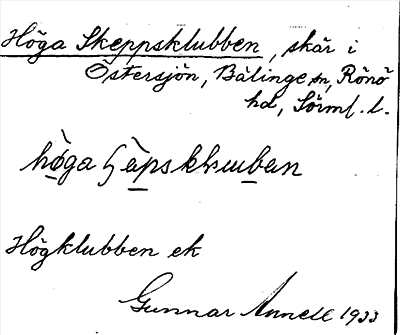 Höga Skeppsklubben, skär i
Östersjön, Bälinge sn, Rönö
hd, Sörml. l.
Högklubben ek
Gunnar Annell 1933